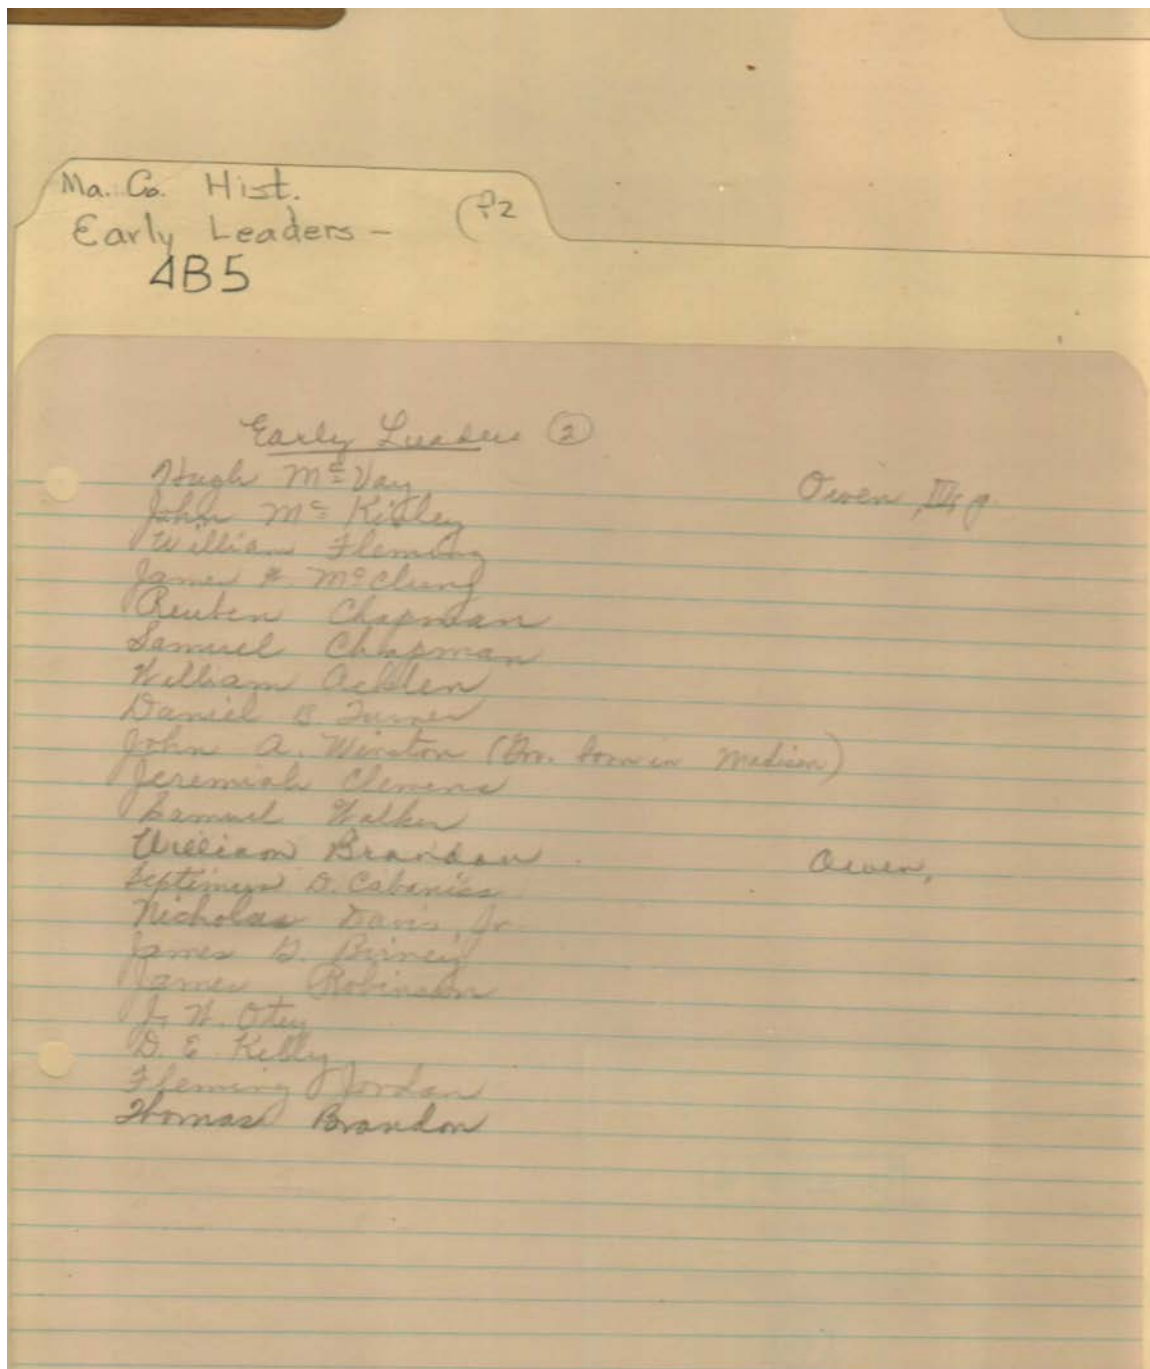 Ma. Co. Hist.
Early Leaders - (P2
4B5
Early Leaders (2)
Hugh McVay Owen, III, p.
John McKinley
William Fleming
James W. McClung
Reuben Chapman
Samuel Chapman
William Acklen
David B Turner
John A. Winston (Gov. born in Madison)
Jeremiah Clemens
Samuel Walker
William Brandon Owen,
Septimus D. Cabaniss
Nicholas Davis, Jr.
James G. Birney
James Robinson
J. W. Otey
D. E. Kelly
Fleming Jordan
Thomas Brandon